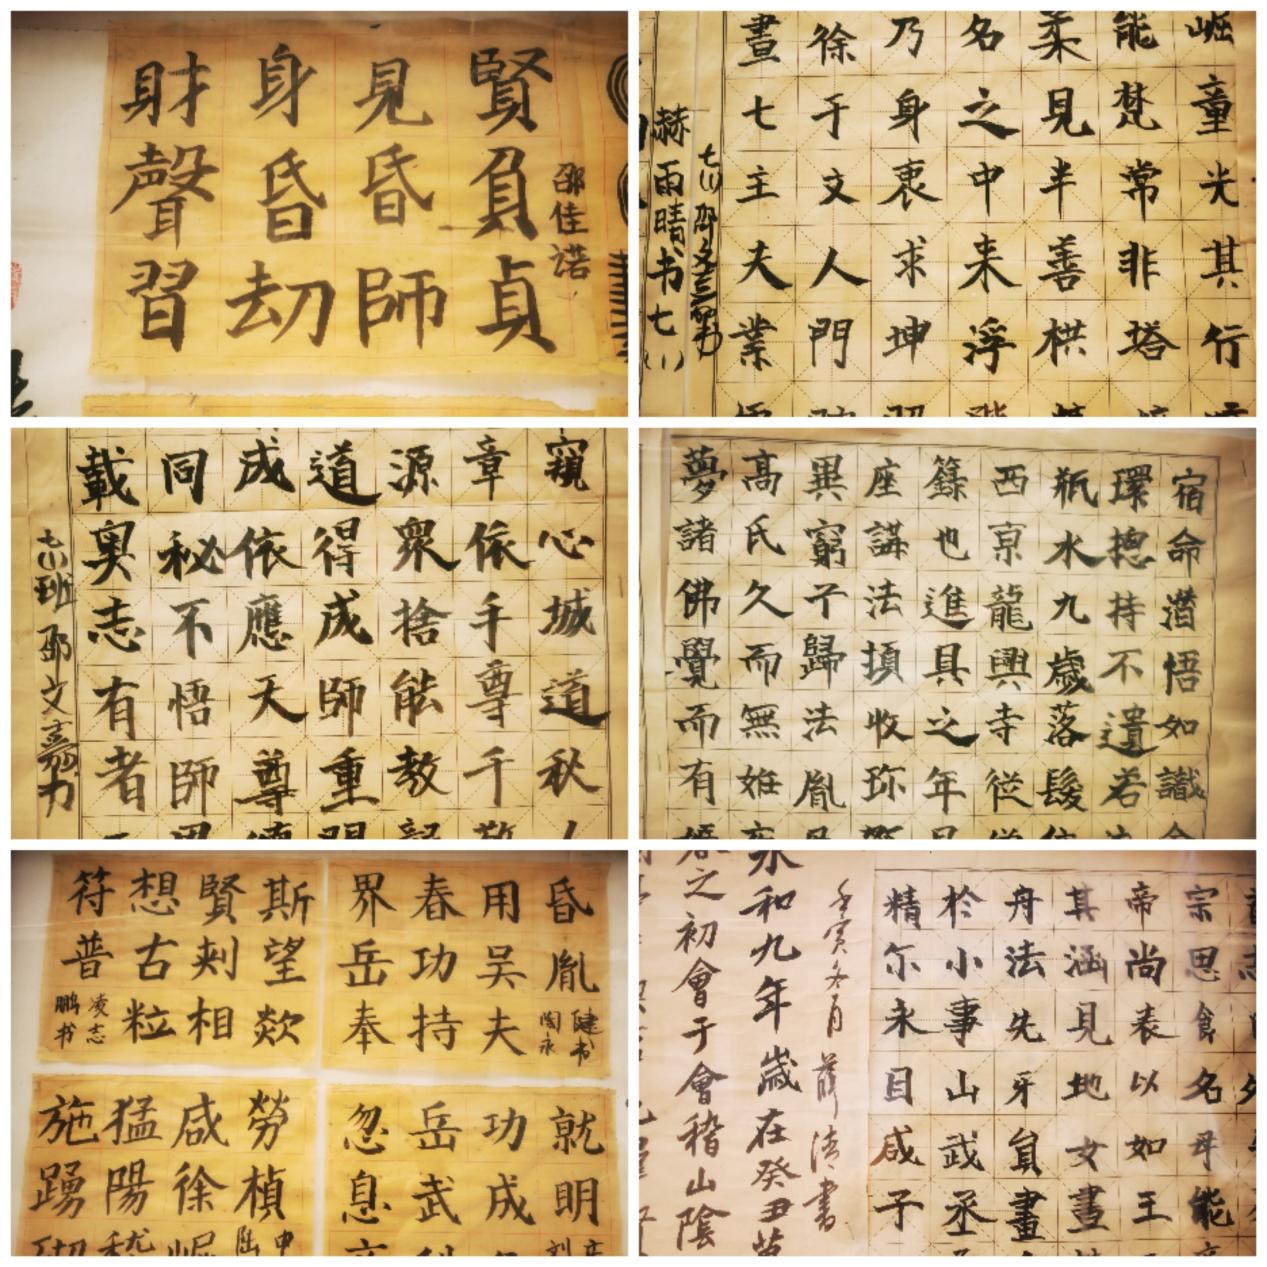 邵佳诺
賢負貞
見昏師
身昏劫
財聲習
崛童光其行
能梵常非塔
柔見半善栱
名之中来浮
乃身衷求坤
徐于文人門
晝七主夫業
赫雨晴书七(1)
窺心城道秋
章依手尊千
源眾捨能教
道得成師重
成依應天尊
同秘不悟師
載奥志有者
七(1)班邵文嘉书
宿命潜悟如識
環揔持不遺若
瓶水九歲落髮
西京龍興寺從
籙也進具之年
座講法頃收珎
異窮子歸法胤
高氏久而無姙
夢諸佛覺而有
斯望欻
賢刾相
想古粒
符普
凌志鹏书
昏胤
用吴夫
春功持
界岳奉
陶永健书
勞楨
咸徐崛
猛陽
施踴
就明
功成
岳武
忽息
宗思食名母能
帝尚表以如王
其涵見地女晝
舟法先牙負畫
於小事山武丞
精尓永目咸子
壬寅冬月薛清書
永和九年歲在癸丑暮
春之初會于會稽山陰